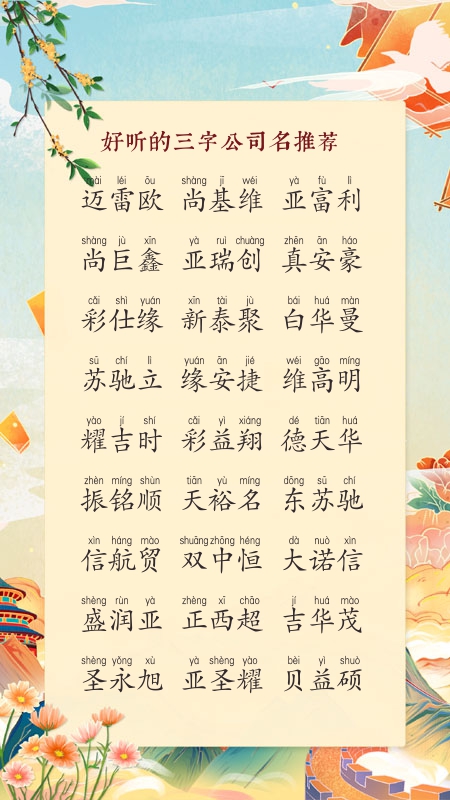 好听的三字公司名推荐
mài léi ōu shàng jī wéi yà fù lì
迈雷欧 尚基维 亚富利
shàng jù xīn yà ruì chuàng zhēn ān háo
尚巨鑫 亚瑞创 真安豪
cǎi shì yuán xīn tài jù bái huá màn
彩仕缘 新泰聚 白华曼
sū chí lì yuán ān jié wéi gāo míng
苏驰立 缘安捷 维高明
yào jí shí cǎi yì xiáng dé tiān huá
耀吉时 彩益翔 德天华
zhèn míng shùn tiān yù míng dōng sū chí
振铭顺 天裕名 东苏驰
xìn háng mào shuāng zhōng héng dà nuò xìn
信航贸 双中恒 大诺信
shèng rùn yà zhèng xī chāo jí huá mào
盛润亚 正西超 吉华茂
shèng yǒng xù yà shèng yào bèi yì shuò
圣永旭 亚圣耀 贝益硕